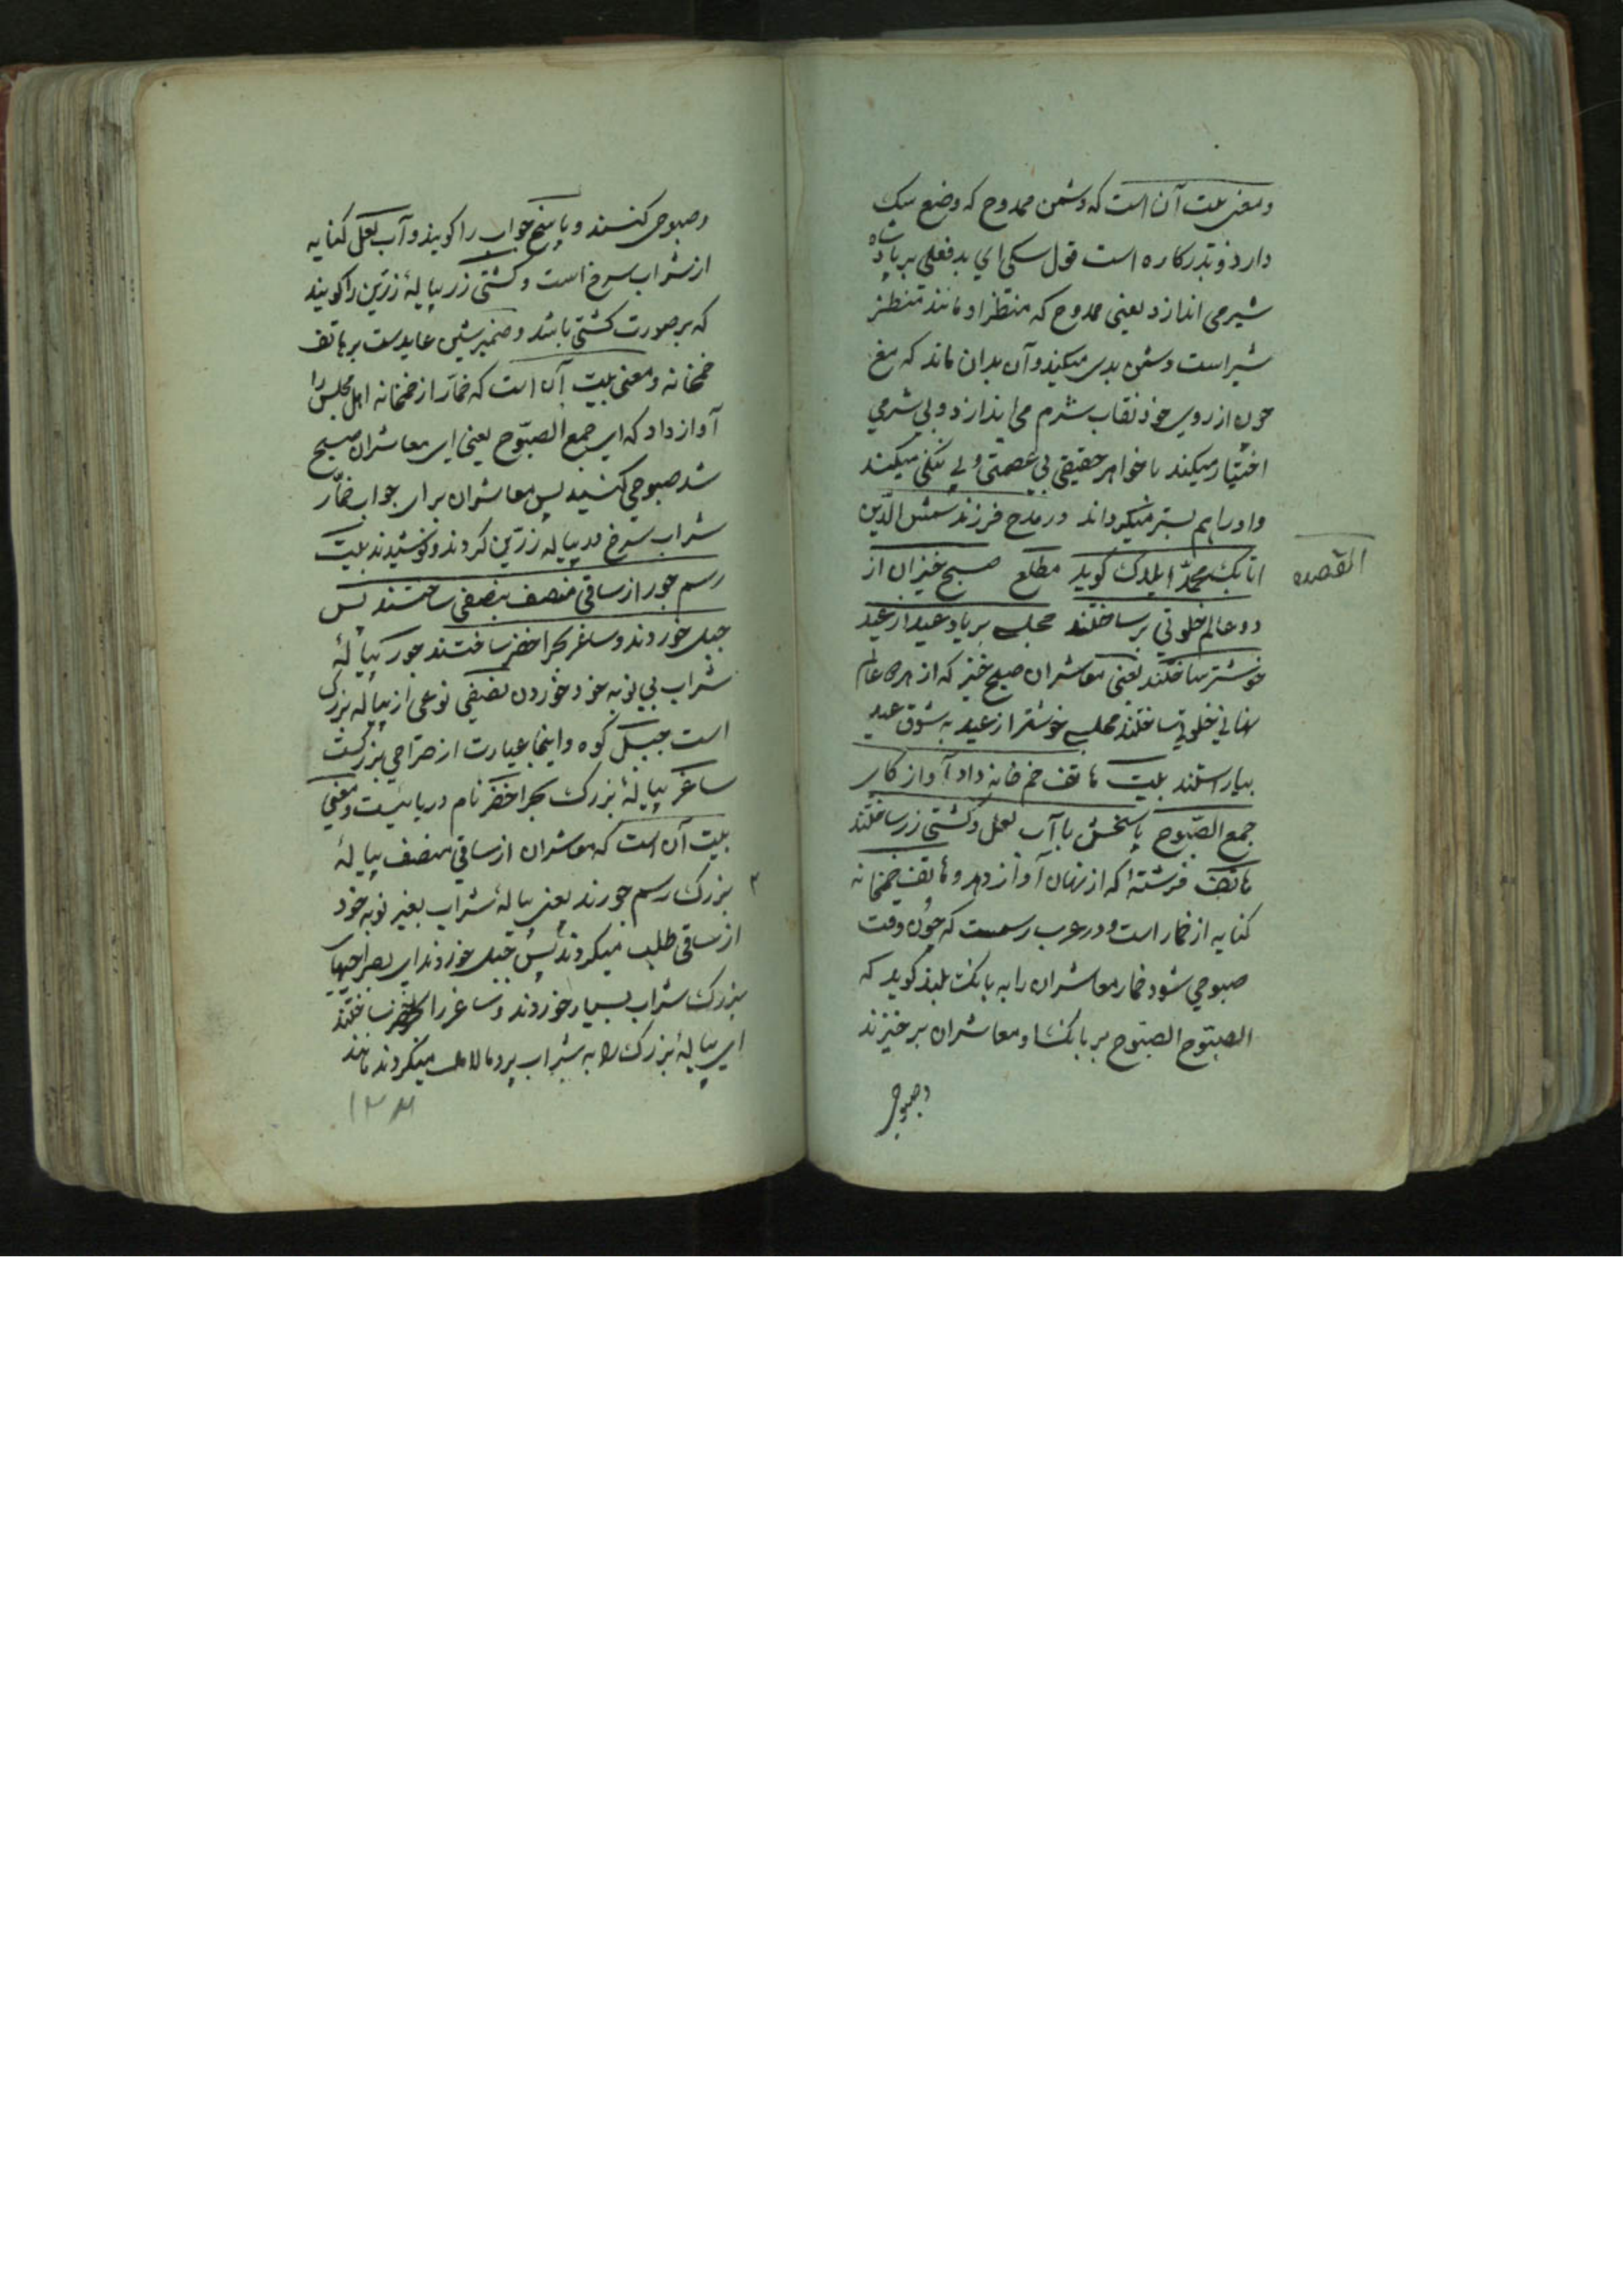 ومعنی بیت آن است که دشمن ممدوح که وضع سک
دارد و بدرکاره است قول سکی ای بدفعلی بر پادشاه
شیر می اندازد یعنی ممدوح که منظر او مانند منظر
شیر است دشمن بدی میکند و آن بدان ماند که مغ
چون از روی خود نقاب شرم می اندازد و بی شرمی
اختیار میکند با خواهر حقیقی بی عصمتی و بی ننگی میکند
و او را هم بستر میکرداند در مدح فرزند شمس الدین
اتابک محمد ایلدک کوید مطلع صبح خیزان از
المقصیده
دو عالم خلوتی بر ساختند مجلسی بر یاد عید از عید
خوشتر ساختند یعنی معاشران صبح خیز که از هر دو عالم
نهانی خلوتی ساختند مجلسی خوشتر از عید به شوق عید
بیاراستند بیت هاتف خم خانه داد آواز کای
جمع الصبوح پاسخش با آب لعل و کشتی زر ساختند
هاتف فرشته که از نهان آواز دهد و هاتف خمخانه
کنایه از خمار است و در عرب رسمست که چون وقت
صبوحی شود خمار معاشران را به بانک بلند کوید که
الصبوح الصبوح بر بانکشا و معاشران بر خیزند
وصبوحی
وصبوحی کنند و پاسخ جواب را کویند و آب لعل کنایه
از شراب سرخ است و کشتی زر پیالهٔ زرین را کویند
که بر صورت کشتی باشد و ضمیر شین عایدست بر هاتف
خمخانه و معنی بیت آن است که خمار از خمخانه اهل مجلس را
آواز داد که ای جمع الصبوح یعنی ای معاشران صبح
شد صبوحی کنید پس معاشران برای جواب خمار
شراب سرخ در پیاله زرین کردند و نوشیدند بیت
رسم جور از ساقی منصف بنصفی ساختند پس
جبل خوردند و ساغر بحر اخضر ساختند جور پیالهٔ
شراب بی نوبه خود خوردن نصیفی نوعی از پیاله بزرک
است جبل کوه و اینجا عبارت از صراحی بزرکست
ساغر پیالهٔ بزرک بحر اخضر نام دریائیست و معنی
بیت آن است که معاشران از ساقی منصف پیالهٔ
بزرک رسم جورند یعنی پیالهٔ شراب بغیر نوبه خود
از ساقی طلب میکردند پس جبل خوردند ای بصراحیهای
بزرک شراب بسیار خوردند و ساغر را بحر اخضر ساختند
ای پیالهٔ بزرک را به شراب پر و مالامال میکردند مانند
۱۳۴